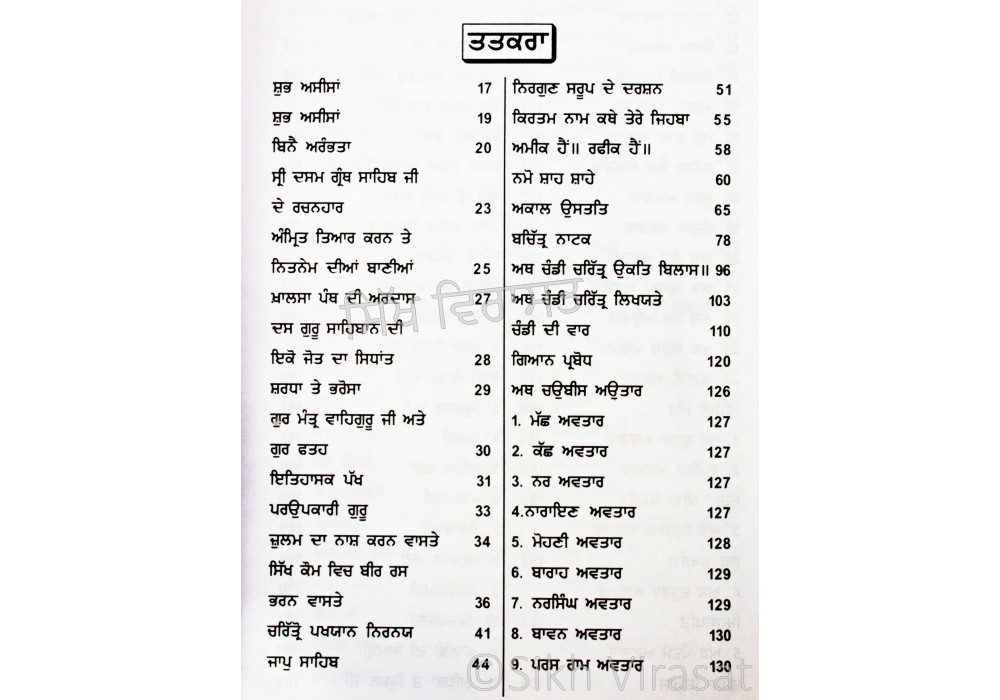 ਤਤਕਰਾ
ਸ਼ੁਭ ਅਸੀਸਾਂ 17
ਸ਼ੁਭ ਅਸੀਸਾਂ 19
ਬਿਨੈ ਅਰੰਭਤਾ 20
ਸ੍ਰੀ ਦਸਮ ਗ੍ਰੰਥ ਸਾਹਿਬ ਜੀ
ਦੇ ਰਚਨਹਾਰ 23
ਅੰਮ੍ਰਿਤ ਤਿਆਰ ਕਰਨ ਤੇ
ਨਿਤਨੇਮ ਦੀਆਂ ਬਾਣੀਆਂ 25
ਖ਼ਾਲਸਾ ਪੰਥ ਦੀ ਅਰਦਾਸ 27
ਦਸ ਗੁਰੂ ਸਾਹਿਬਾਨ ਦੀ
ਇਕੋ ਜੋਤ ਦਾ ਸਿਧਾਂਤ 28
ਸ਼ਰਧਾ ਤੇ ਭਰੋਸਾ 29
ਗੁਰ ਮੰਤ੍ਰ ਵਾਹਿਗੁਰੂ ਜੀ ਅਤੇ
ਗੁਰ ਫਤਹ 30
ਇਤਿਹਾਸਕ ਪੱਖ 31
ਪਰਉਪਕਾਰੀ ਗੁਰੂ 33
ਜ਼ੁਲਮ ਦਾ ਨਾਸ਼ ਕਰਨ ਵਾਸਤੇ 34
ਸਿੱਖ ਕੌਮ ਵਿਚ ਬੀਰ ਰਸ
ਭਰਨ ਵਾਸਤੇ 36
ਚਰਿੱਤ੍ਰੋ ਪਖਯਾਨ ਨਿਰਨਯ 41
ਜਾਪੁ ਸਾਹਿਬ 44
ਨਿਰਗੁਣ ਸਰੂਪ ਦੇ ਦਰਸ਼ਨ 51
ਕਿਰਤਮ ਨਾਮ ਕਥੇ ਤੇਰੇ ਜਿਹਬਾ 55
ਅਮੀਕ ਹੈਂ॥ ਰਫੀਕ ਹੈਂ॥ 58
ਨਮੋ ਸ਼ਾਹ ਸ਼ਾਹੇ 60
ਅਕਾਲ ਉਸਤਤਿ 65
ਬਚਿੱਤ੍ਰ ਨਾਟਕ 78
ਅਥ ਚੰਡੀ ਚਰਿੱਤ੍ਰ ਉਕਤਿ ਬਿਲਾਸ॥ 96
ਅਥ ਚੰਡੀ ਚਰਿੱਤ੍ਰ ਲਿਖਯਤੇ 103
ਚੰਡੀ ਦੀ ਵਾਰ 110
ਗਿਆਨ ਪ੍ਰਬੋਧ 120
ਅਥ ਚਉਬੀਸ ਅਉਤਾਰ 126
1. ਮੱਛ ਅਵਤਾਰ 127
2. ਕੱਛ ਅਵਤਾਰ 127
3. ਨਰ ਅਵਤਾਰ 127
4.ਨਾਰਾਇਣ ਅਵਤਾਰ 127
5. ਮੋਹਣੀ ਅਵਤਾਰ 128
6. ਬਾਰਾਹ ਅਵਤਾਰ 129
7. ਨਰਸਿੰਘ ਅਵਤਾਰ 129
8. ਬਾਵਨ ਅਵਤਾਰ 130
9. ਪਰਸ ਰਾਮ ਅਵਤਾਰ 130
ਸਿੱਖ ਵਿਰਾਸਤ
©Sikh Virasat